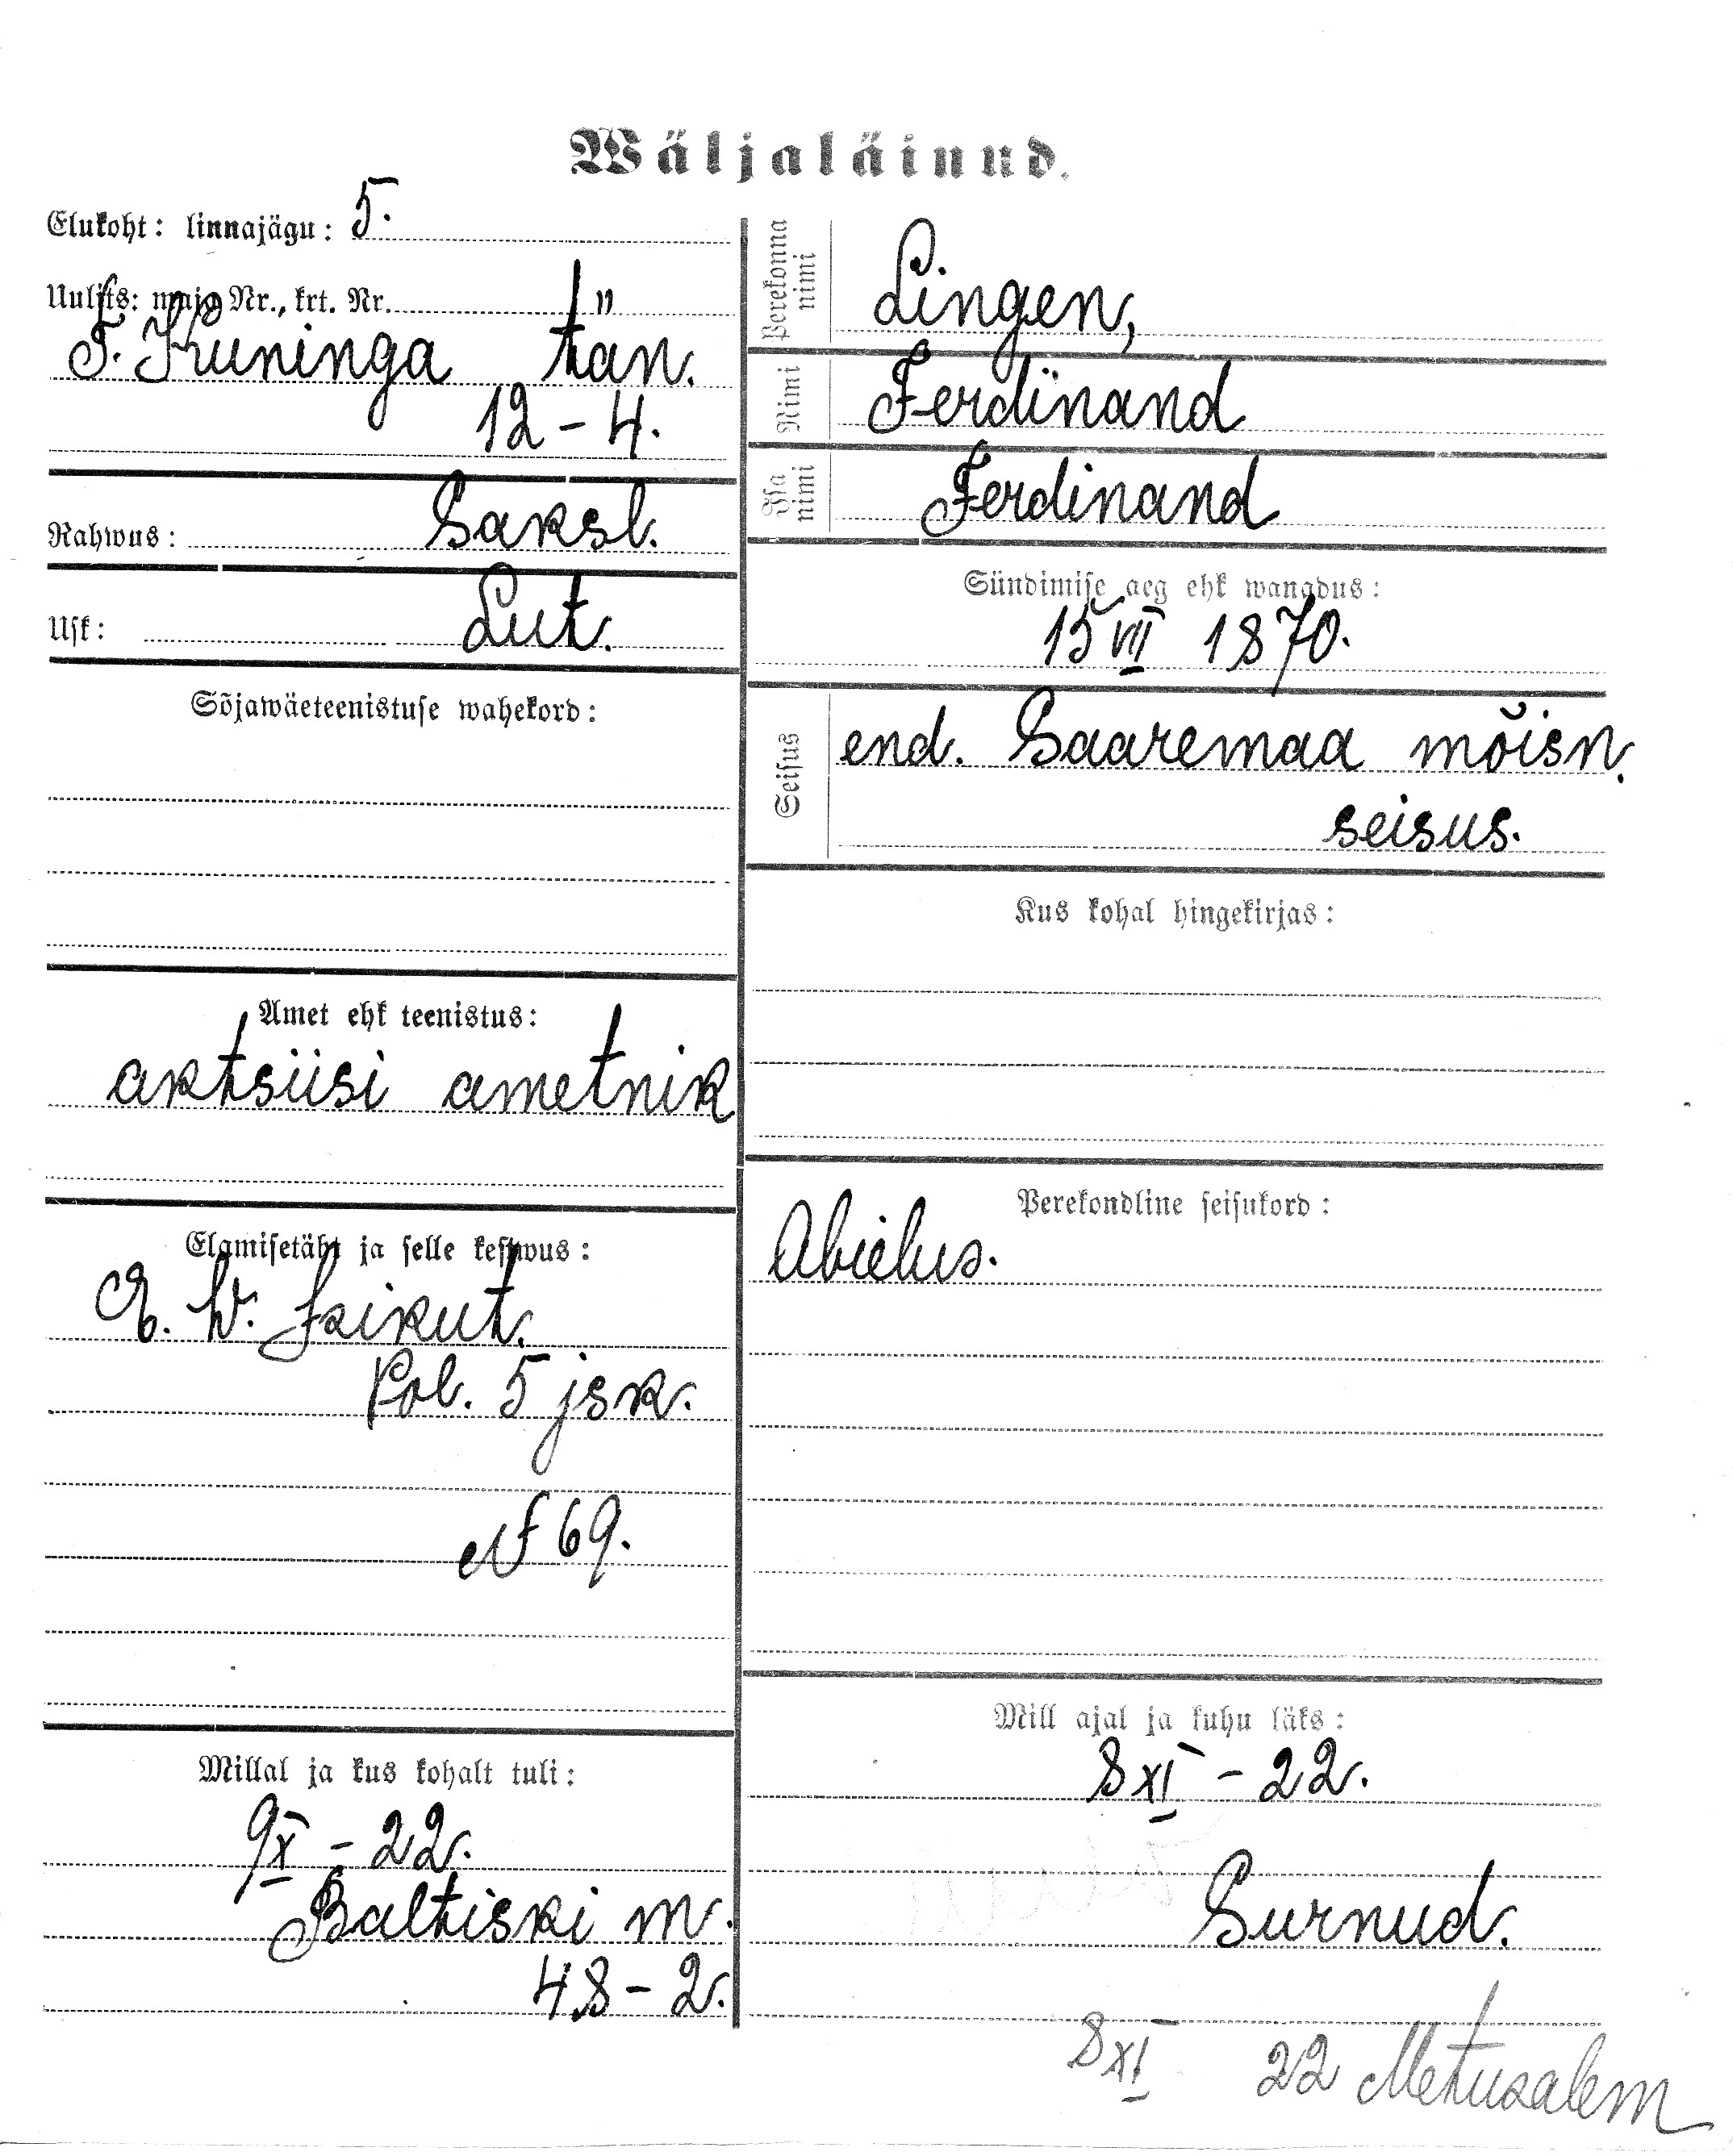 Wäljaläinud.
Elukoht: linnajägu: 5.
Uulits: maja Nr., krt. Nr.
F. Kuninga tän.
12 - 4.
Rahwus: Saksl.
Usk: Lut.
Sõjawäeteenistuse wahekord:
Amet ehk teenistus:
aktsiisi ametnik
Elamisetäht ja selle kestwus:
E. W. Isikut.
Pol. 5 jsk.
№ 69.
Millal ja kus kohalt tuli:
9 X - 22.
Baltiski m.
48 - 2.
Perekonna nimi Lingen,
Nimi Ferdinand
Isa nimi Ferdinand
Sündimise aeg ehk wanadus:
15 VII 1870.
Seisus end. Saaremaa mõisn.
seisus.
Kus kohal hingekirjas:
Perekondline seisukord:
Abielus.
Mill ajal ja kuhu läks:
8 XI - 22.
Surnud.
8 XI 22 Metusalem